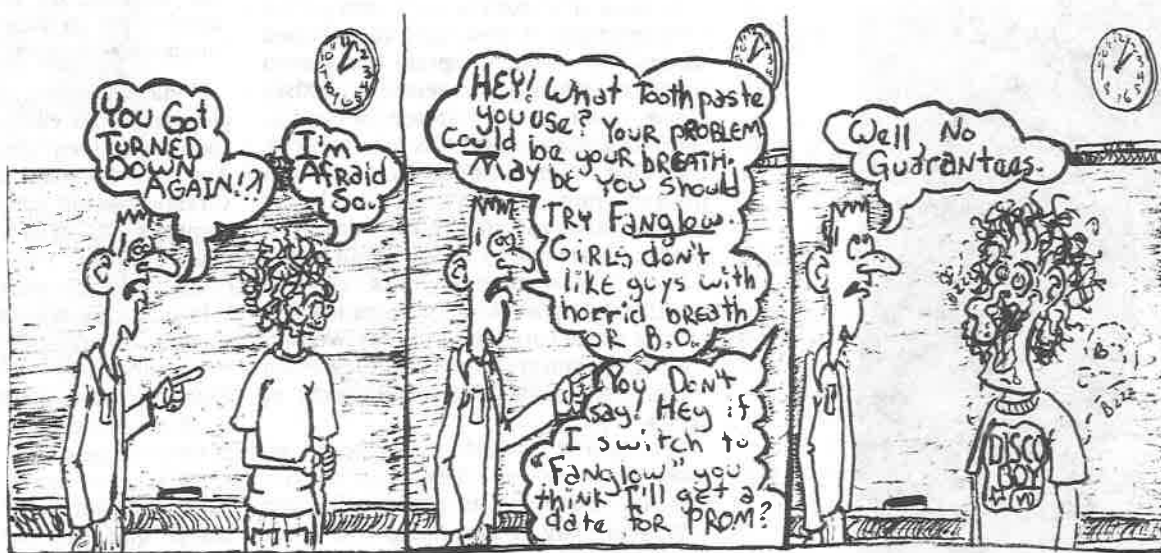 You Got
TURNED
DOWN
AGAIN!?!
I'm
Afraid
So.
HEY! What Toothpaste
you use? YOUR PROBLEM
Could be your BREATH.
May be You should
TRY Fanglow.
GIRLS don't
like guys with
horrid breath
OR B.O.
You Don't
say! HEY if
I switch to
"Fanglow" you
think I'll get a
date for PROM?
Well, No
Guarantees.
DISCO
BOY